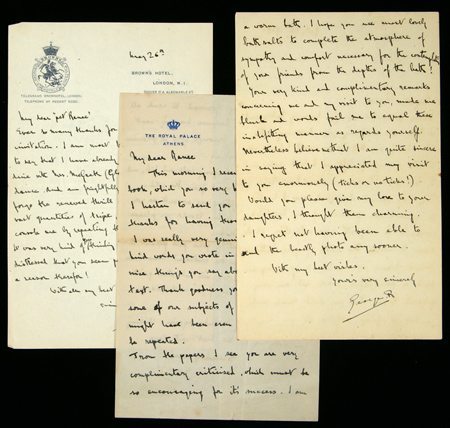 May 26th
BROWN'S HOTEL,
LONDON, W.1.
DOVER ST & ALBEMARLE ST
TELEGRAMS, BROWNOTEL, LONDON.
TELEPHONE Nº REGENT 6020.
My dear "
Ever so many thanks for
invitation. I am most
to say but I have already
dine with Mrs.
dance. And am frightfully
forgo the renewed thrill
vast quantities of tripe
console me by repeating
It was very kind of thinking
distressed that you
a reason therefor!
With all my best
THE ROYAL PALACE
ATHENS
My dear Ranee
This morning I recei
book, which you so very
I hasten to send you
thanks for having thou
I was really very genuin
kind words you wrote in
nice things you say abou
text. Thank goodness you
some of our subjects of
might have been even
be repeated.
From the papers I see you are very
complimentary criticised, which must be
so encouraging for its success. I am
a warm bath. I hope you use most lovely
bath salts to complete the atmosphere of
sympathy and comfort necessary for the
of your friends from the depths of the bath!
Your very kind and complimentary remarks
concerning me and my visit to you, made me
blush and words fail me to equal these
in a fitting manner as regards yourself.
Nevertheless believe that I am quite sincere
in saying that I appreciated my visit
to you enormously (ticks or no ticks!).
Would you please give my love to your
daughters, I thought them charming.
I regret not having been able to
send the beastly photo any sooner.
With my best wishes.
Yours very sincerely
George R